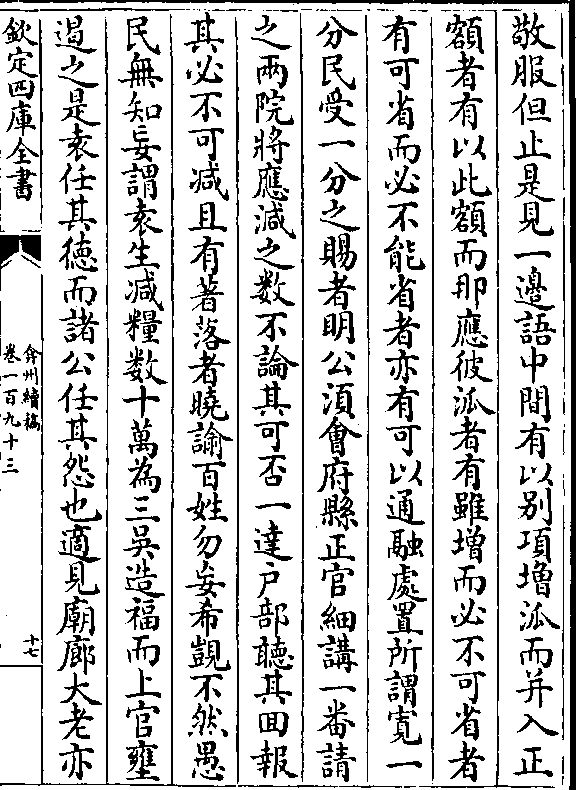 敬服但止是見一邊語中間有以别項增派而并入正
額者有以此額而那應彼派者有雖增而必不可省者
有可省而必不能省者亦有可以通融處置所謂寛一
分民受一分之賜者明公湏會府縣正官細講一番請
之兩院將應減之数不論其可否一達户部聽其回報
其必不可减且有著落者曉諭百姓勿妄希覬不然愚
民無知妄謂袁生减糧数十萬為三吳造福而上官壅
遏之是袁任其徳而諸公任其怨也適見廟廊大老亦
欽定四庫全書
弇州續稿
卷一百九十三
十七